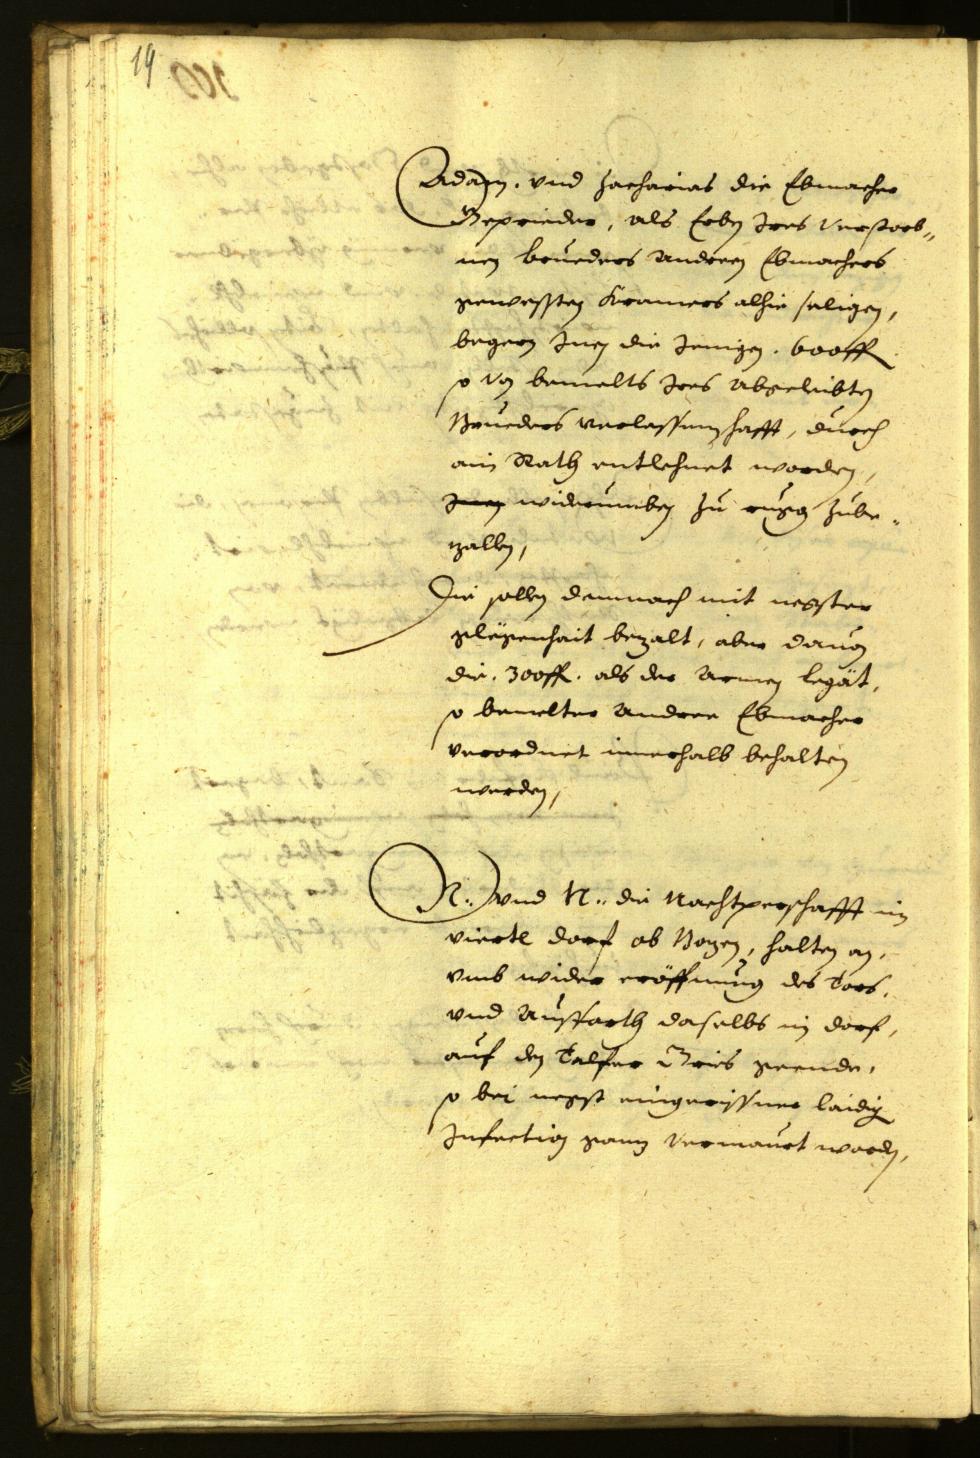 19
Adam, vnd Zacharias die Ebmacher
Geprieder, als Erbn Jres verstorb„
nen brueders Andreen Ebmachers
gewessten Kramers alhie seligen,
begern Jnen die Jenigen . 600 fl
so von bemelts Jres abgeleibten
Brueders verlassenschafft, durch
ain Rath entlehnet worden,
widerumben zu rugg zube„
zallen,
Die sollen demnach mit negster
glegenhait bezalt, aber dauon
die . 300 fl . als der Armen legat,
so bemelter Andree Ebmacher
verordnet innerhalb behalten
werden,
N: vnd N: die Nachtperschafft im
viertl dorf ob Bozen, halten an,
vmb wider eröffnung des Tors,
vnd Ausfarth daselbs in dorf,
auf den Talfer Gries geende,
so bei negst eingerissner laidig
Infection gann vermaurt worden,